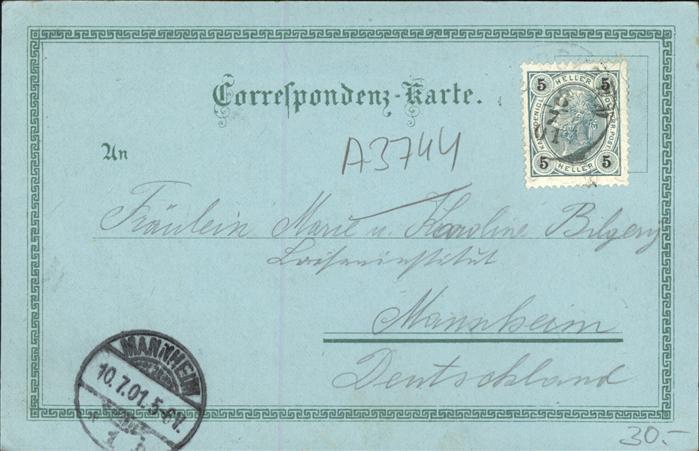 Correspondenz-Karte.
5 HELLER 5
5 HELLER 5
An
A3744
Fräulein Marie u. Karoline Bilgery
Luiseninstitut
Mannheim
Deutschland
MANNHEIM
10.7.01.5-6N.
30.-